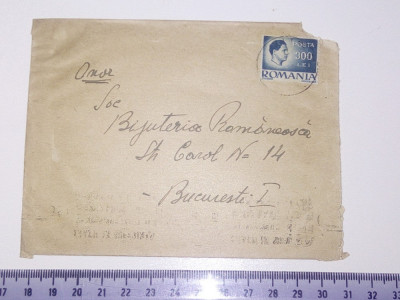 POSTA
300
LEI
ROMANIA
Onor
Soc
Bijuteria Românească
Str Carol No 14
- Bucuresti I
17 18 19 20 21 22 23 24 25 26 27 28 29 30 31 32 33